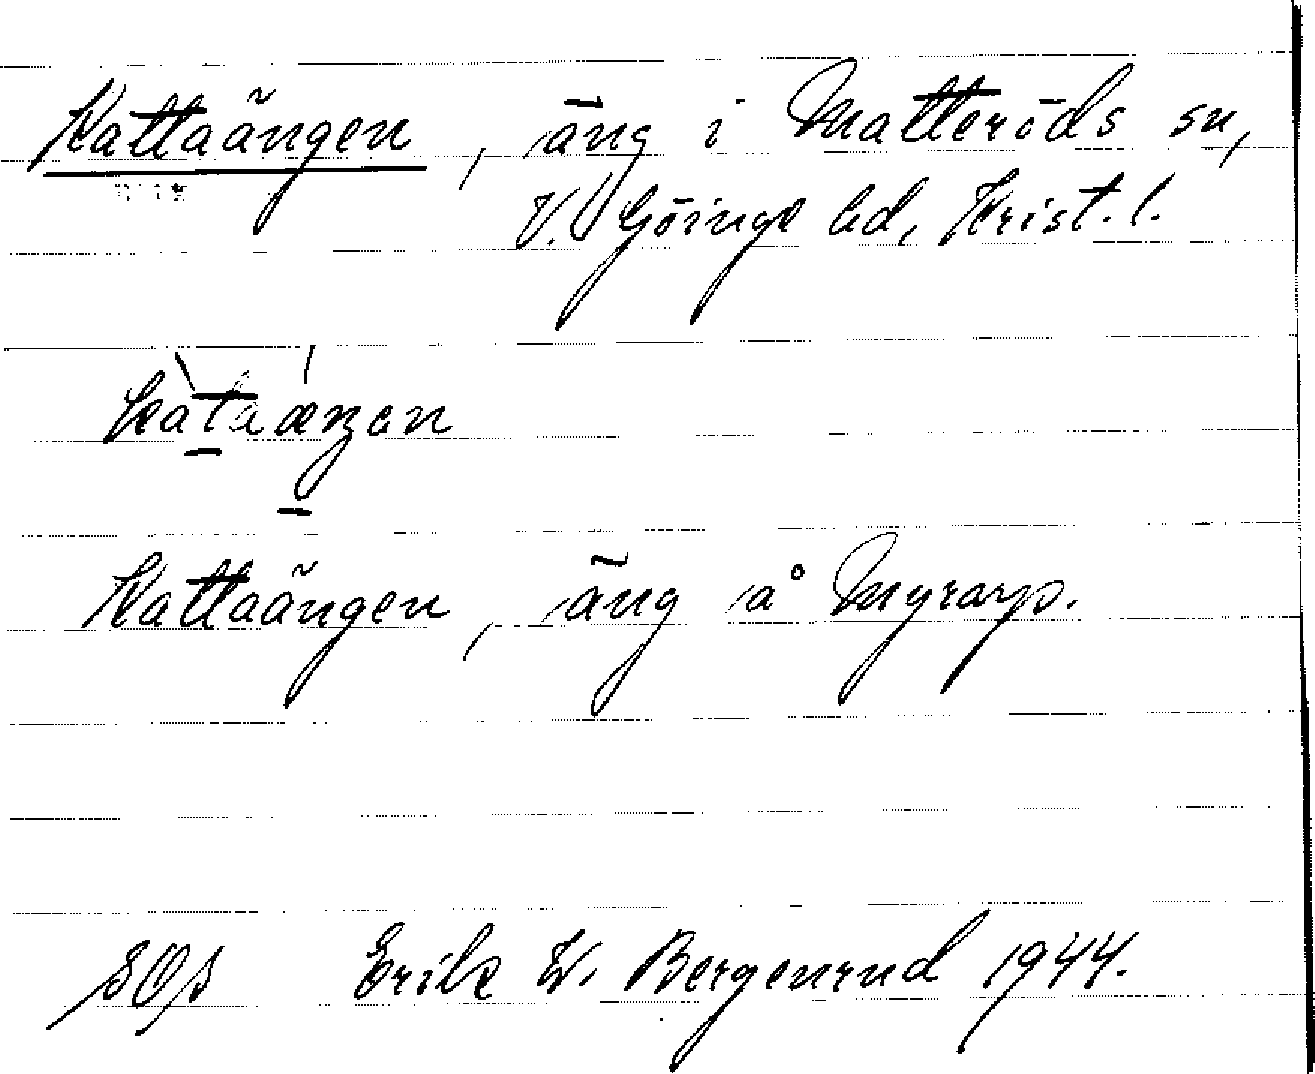 Kattaängen, äng i Matteröds sn,
V. Göinge hd, Krist. l.
kàtaǽŋən
Kattaängen, äng å Myrarp.
SOA Erik W. Bergenrud 1944.